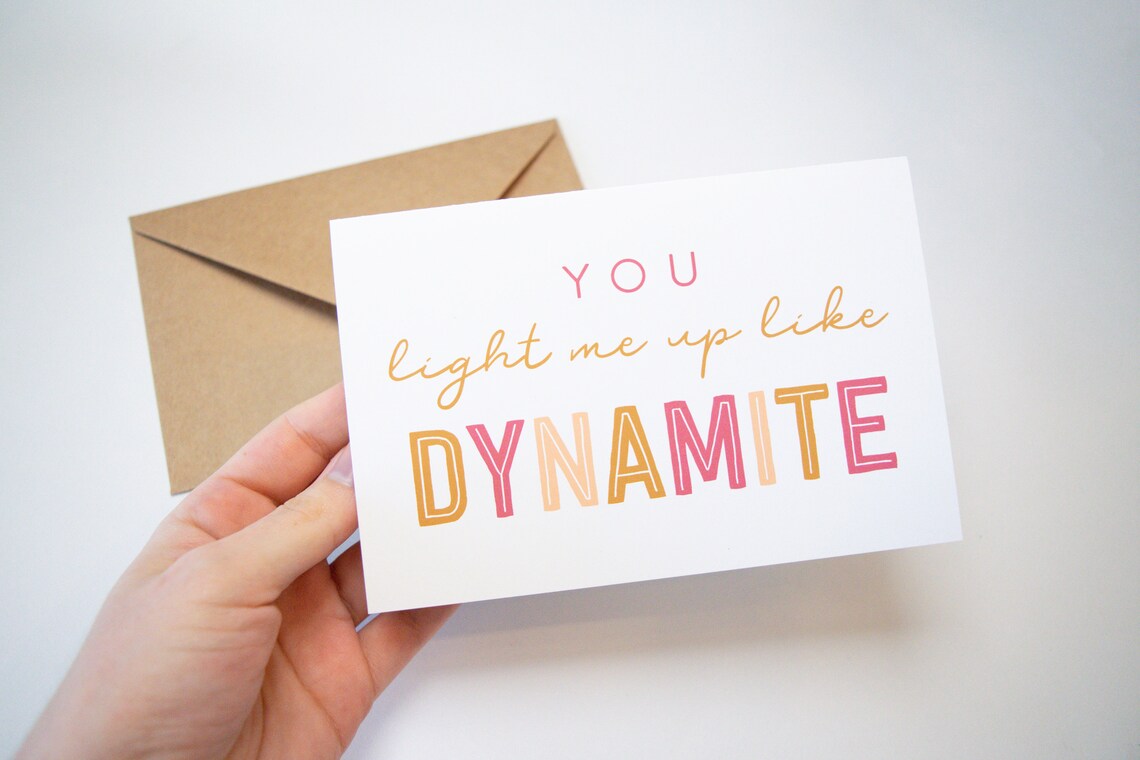 YOU
light me up like
DYNAMITE